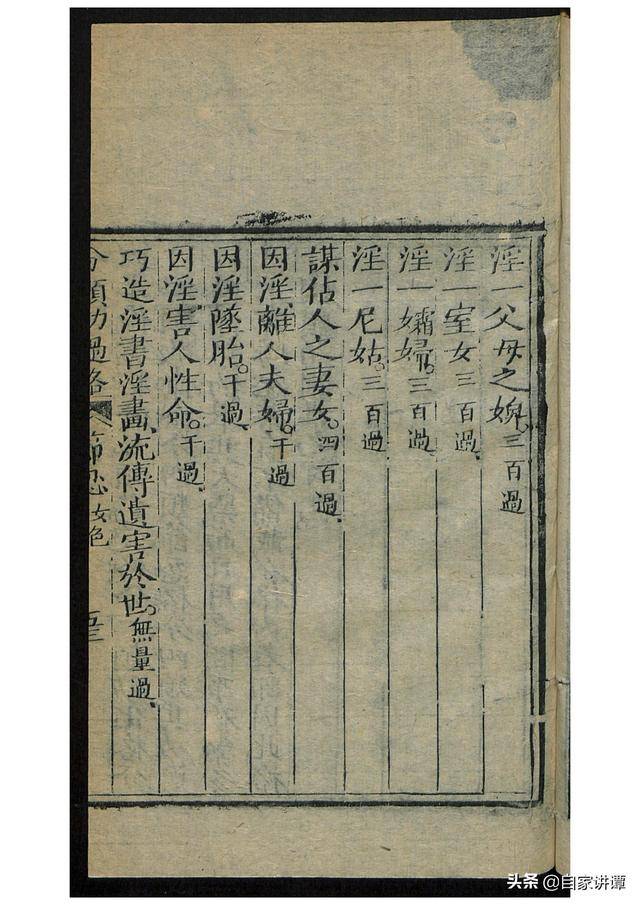 淫一父母之婢。三百過
淫一室女三百過
淫一孀婦。三百過
淫一尼姑。三百過
謀佔人之妻女。四百過
因淫離人夫婦。千過
因淫墜胎。千過
因淫害人性命。千過
巧造淫書淫畫流傳遺害於世。無量過
分類功過格 節忍 女色
头条 @自家讲谭